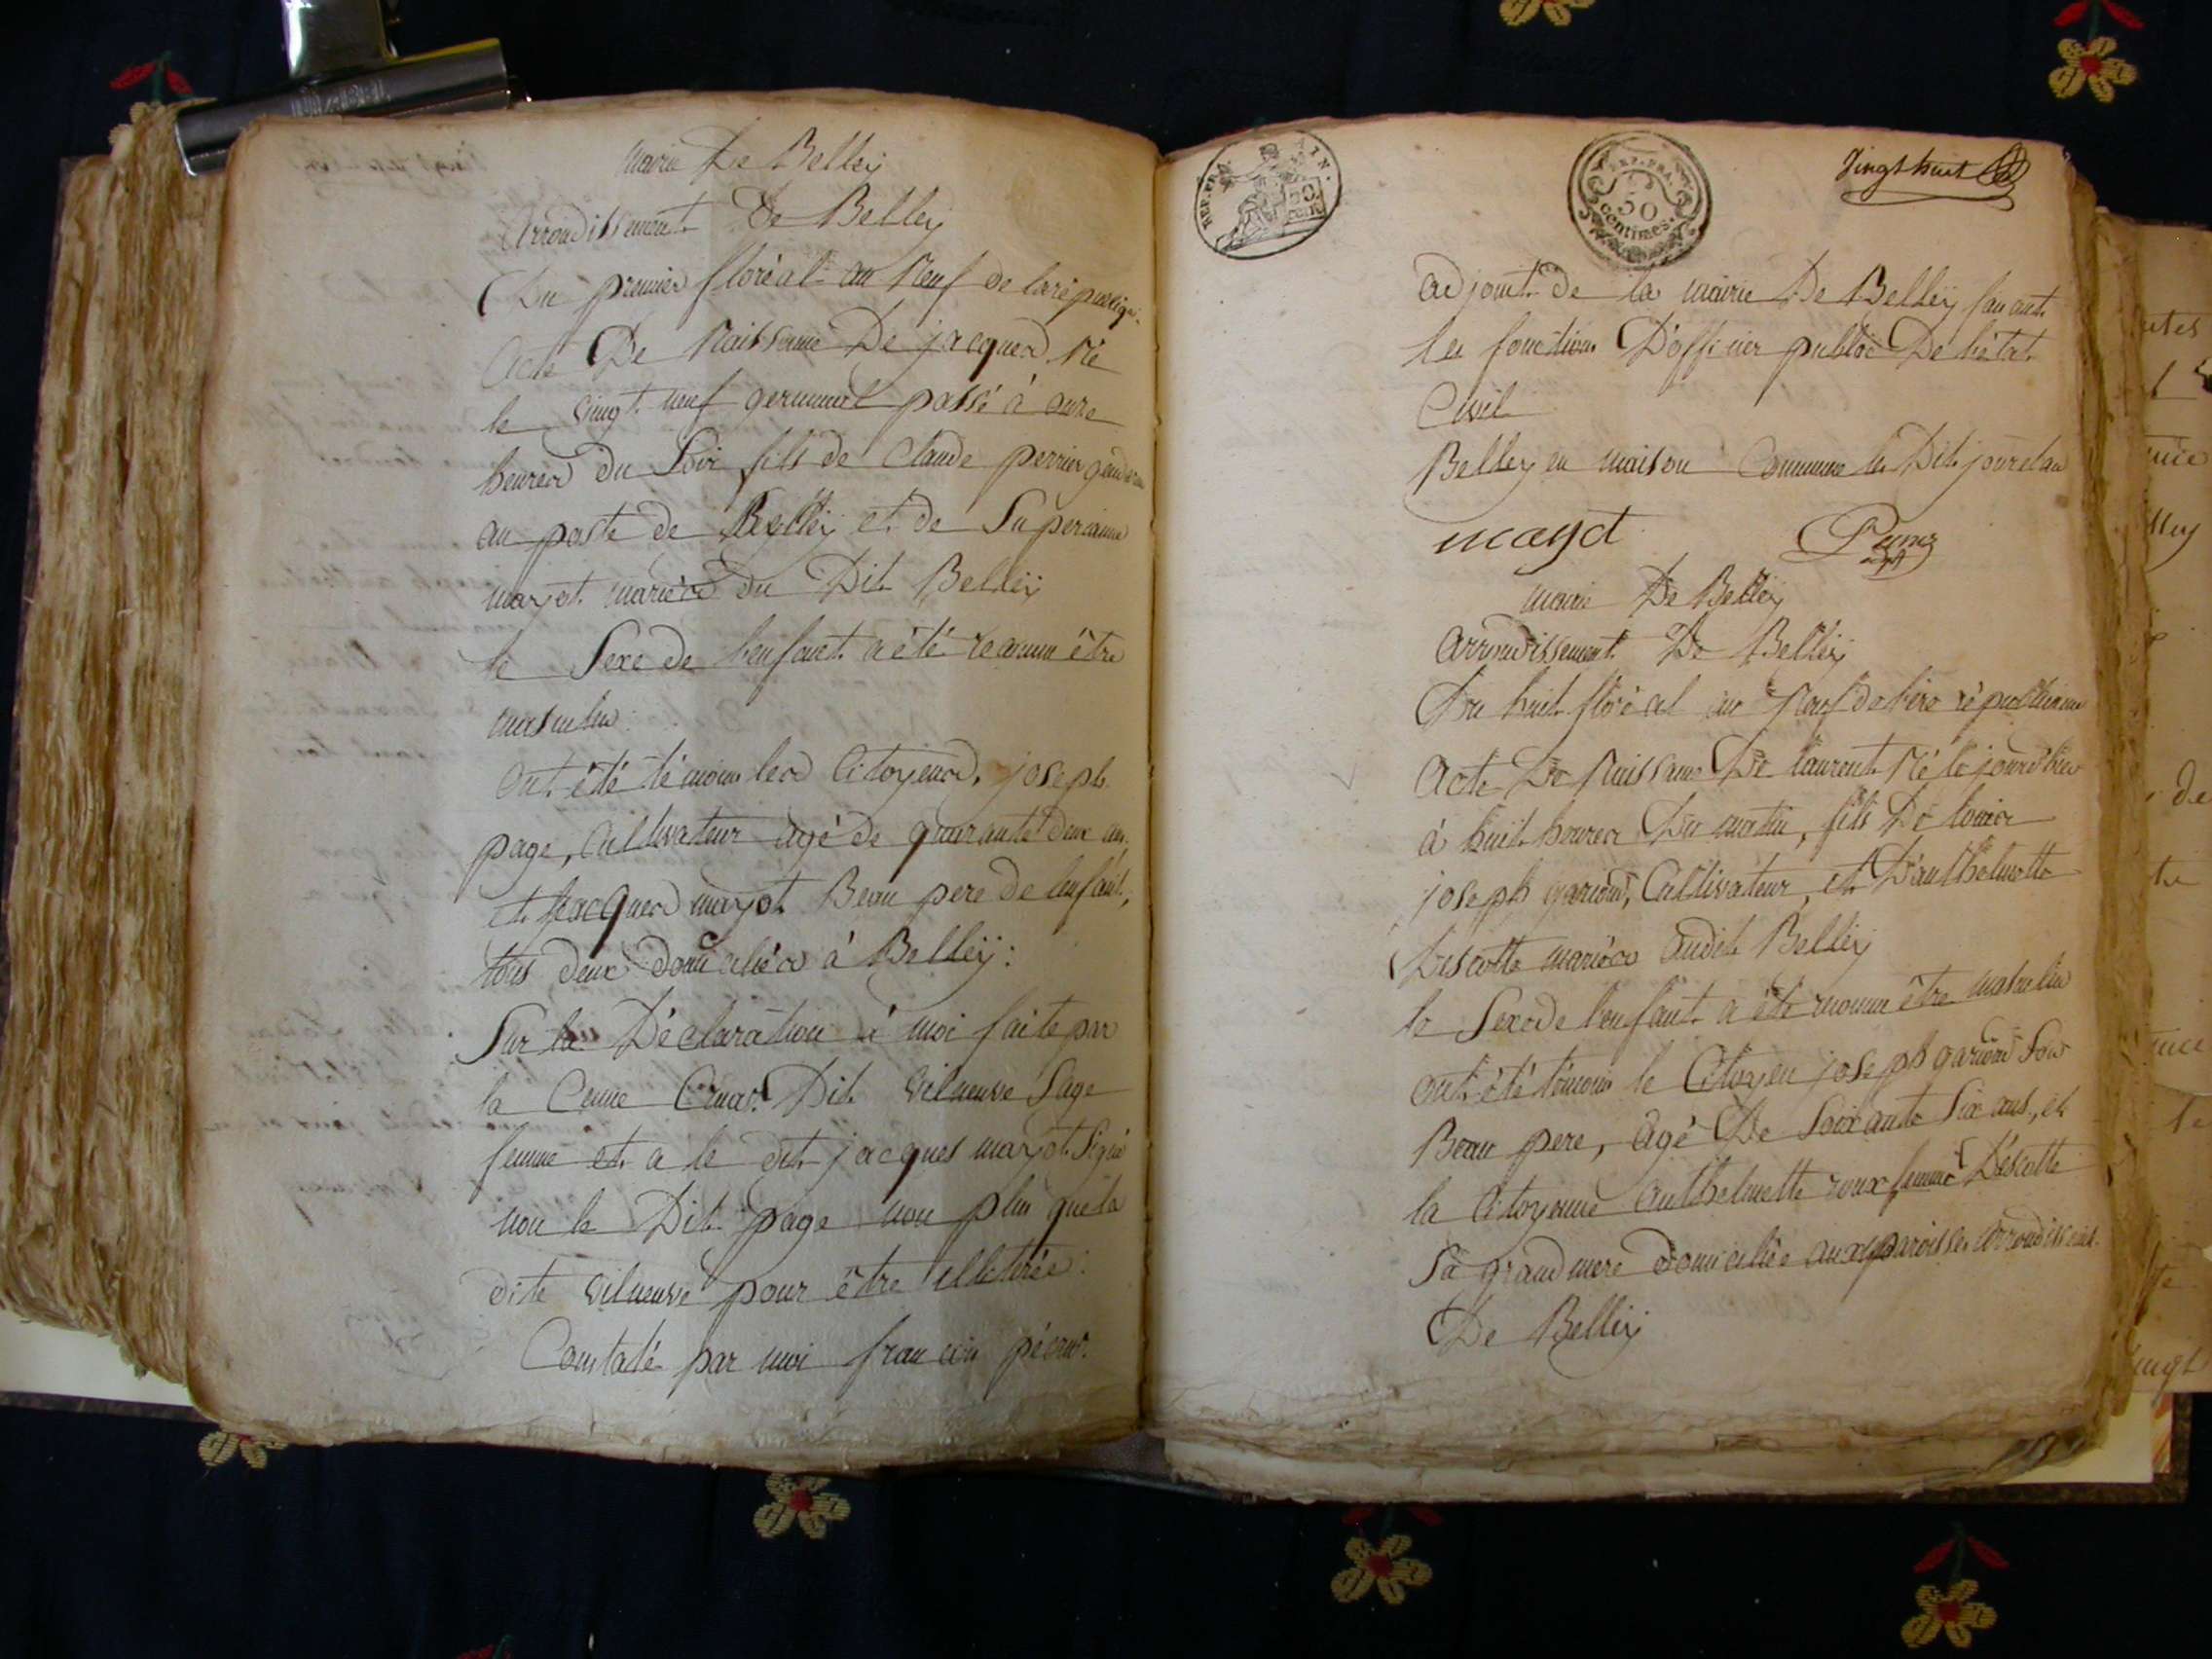 mairie De Belleÿ
Arrondissement De Belleÿ
Du premier floréal an Neuf de la républiq
Acte De Naissance De jacques Né
le vingt neuf germinal passé à onze
heures du Soir fils de Claude perrier gendarme
au poste de Belleÿ et de
mayot mariés du Dit Belleÿ
le Sexe de l'enfant a été reconnu être
masculin
Ont été témoins les Citoyens, joseph
page, Cultivateur agé de quarante deux ans
et jacques mayot Beau pere de lenfant,
tous deux domiciliés à Belleÿ:
Sur la Déclaration à moi faite par
la Dit vilneuve Sage
femme et a le dit jacques mayot Signé
non le Dit page non plus que la
dite vilneuve pour être illetirée:
Constaté par moi françois
REP. FRA.
50
CENT.
REP. FRA.
50
centimes
Vingt huit
adjoint de la mairie De Belleÿ faisant
les fonctions D'officier public De l'état
Civil
Belley en maison Commune le Dit jour et an
mayot
mairie De Belleÿ
Arrondissement De Belleÿ
Du huit floréal an Neuf de l'ère républicaine
Acte De Naissance De laurent Né le jourd'hui
à huit heures Du matin, fils De louis
joseph Cultivateur, et D'anthelmette
Descotte mariés audit Belleÿ
le Sexe de l'enfant a été reconnu être masculin
ont été témoins le Citoyen joseph Son
Beau pere, âgé De Soixante Six ans, et
la Citoyenne anthelmette roux femme Déscotte
Sa grand mere domiciliée aux paroisses arrondissement
De Belleÿ